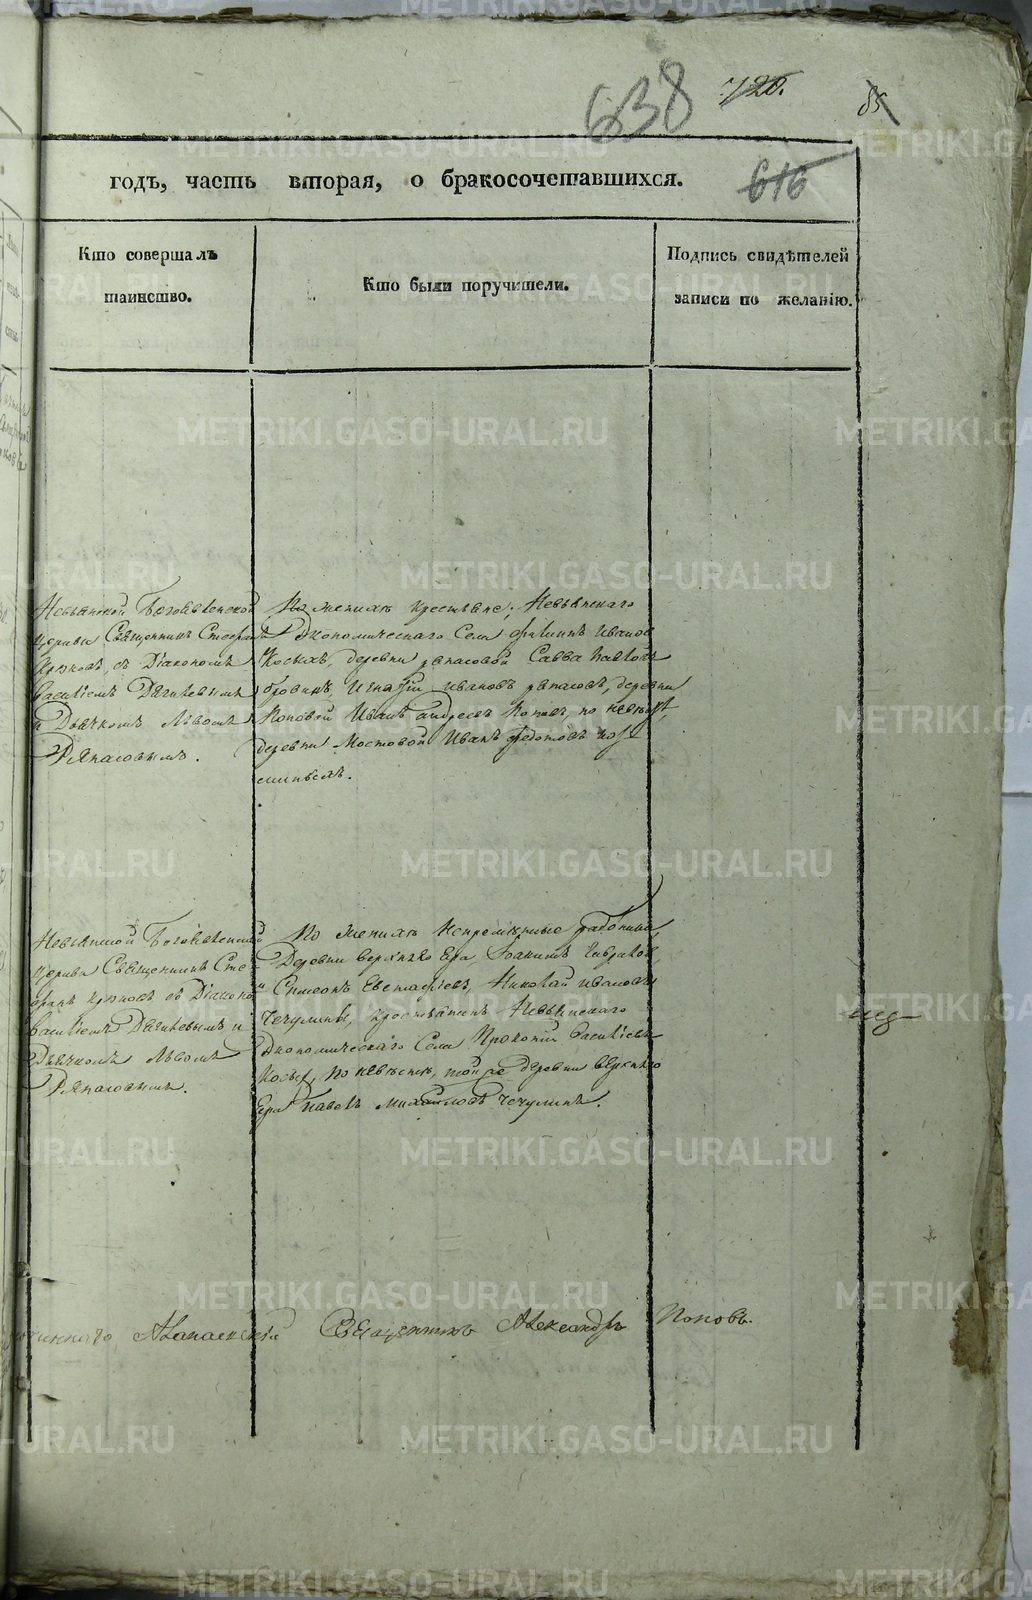 638 720. 85
616
годъ, часть вторая, о бракосочетавшихся.
Кто совершалъ
таинство.
Кто были поручители.
Подпись свидѣтелей
записи по желанію.
Невьянской Богоявленской
церкви Священникъ Стефанъ
съ Діакономъ
Василіемъ Дягилевымъ
и Дьячкомъ Львомъ
Ряпасовымъ.
По женихѣ крестьяне, Невьянскаго
Экономическаго Села Филиппъ Ивановъ
Косыхъ, деревни Ряпасовой Савва
Игнатій Ивановъ Ряпасовъ, деревни
Поповой Иванъ Андреевъ Поповъ, по невѣстѣ,
деревни Мостовой Иванъ Федотовъ
Невьянской Богоявленской
церкви Священникъ Сте-
фанъ съ Діакономъ
Василіемъ Дягилевымъ и
Дьячкомъ Львомъ
Ряпасовымъ.
По женихѣ Непремѣнные работники
Деревни Верхняго Яра Іоакимъ Гавриловъ,
Симеонъ Евстафіевъ, Николай Ивановъ
Чечулины, крестьянинъ Невьянскаго
Экономическаго Села Прокопій Василіевъ
Косыхъ, по невѣстѣ, той же деревни Верхняго
Яра Павелъ Михайловъ Чечулинъ.
Алапаевскій Священникъ Александръ Поповъ.
METRIKI.GASO-URAL.RU